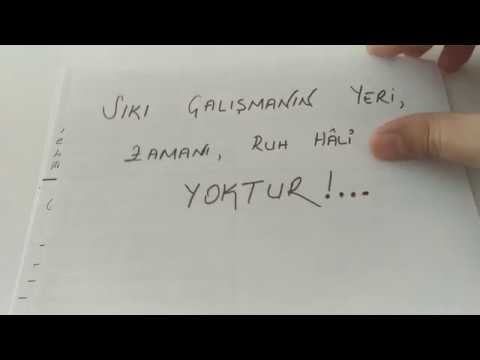 SIKI ÇALIŞMANIN YERİ,
ZAMANI, RUH HÂLİ
YOKTUR!...